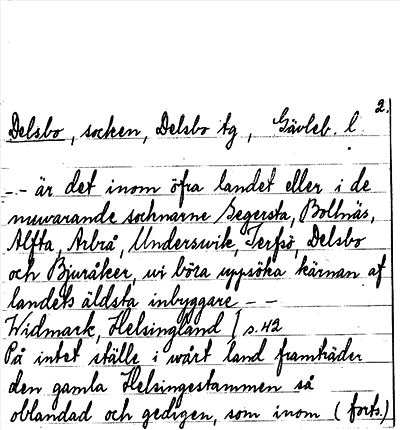 2.
Delsbo, socken, Delsbo tg, Gävleb. l.
-- är det inom öfra landet eller i de
nuwarande socknarne Segersta, Bollnäs,
Alfta, Arbrå, Underswik, Jerfsö, Delsbo
och Bjuråker, wi böra uppsöka kärnan af
landets äldsta inbyggare --
Widmark, Helsingland I s. 42
På intet ställe i wårt land framträder
den gamla Helsingestammen så
oblandad och gedigen, som inom (forts.)